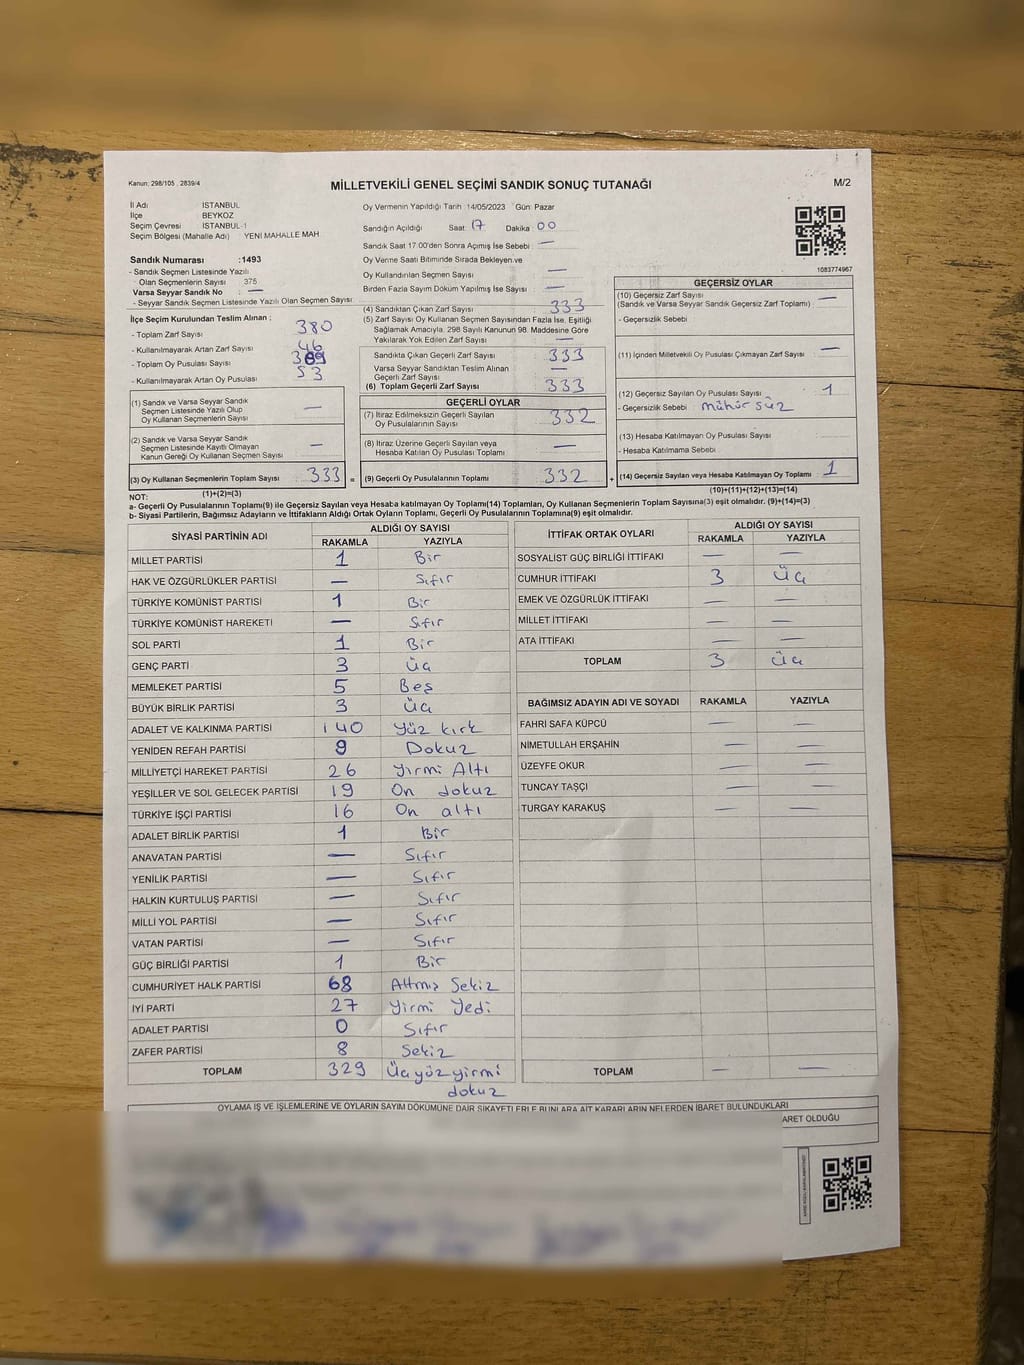 Kanun: 298/105 , 2839/4
MİLLETVEKİLİ GENEL SEÇİMİ SANDIK SONUÇ TUTANAĞI
M/2
İl Adı İSTANBUL
İlçe BEYKOZ
Seçim Çevresi İSTANBUL-1
Seçim Bölgesi (Mahalle Adı) YENİ MAHALLE MAH.
Sandık Numarası :1493
- Sandık Seçmen Listesinde Yazılı
Olan Seçmenlerin Sayısı 375
Varsa Seyyar Sandık No : —
- Seyyar Sandık Seçmen Listesinde Yazılı Olan Seçmen Sayısı
İlçe Seçim Kurulundan Teslim Alınan :
- Toplam Zarf Sayısı 380
- Kullanılmayarak Artan Zarf Sayısı 46
- Toplam Oy Pusulası Sayısı
- Kullanılmayarak Artan Oy Pusulası 53
(1) Sandık ve Varsa Seyyar Sandık
Seçmen Listesinde Yazılı Olup
Oy Kullanan Seçmenlerin Sayısı —
(2) Sandık ve Varsa Seyyar Sandık
Seçmen Listesinde Kayıtlı Olmayan
Kanun Gereği Oy Kullanan Seçmen Sayısı —
(3) Oy Kullanan Seçmenlerin Toplam Sayısı 333 =
(1)+(2)=(3)
Oy Vermenin Yapıldığı Tarih :14/05/2023 Gün: Pazar
Sandığın Açıldığı Saat 17 Dakika 00
Sandık Saat 17:00'den Sonra Açılmış İse Sebebi : —
Oy Verme Saati Bitiminde Sırada Bekleyen ve
Oy Kullandırılan Seçmen Sayısı —
Birden Fazla Sayım Döküm Yapılmış İse Sayısı : —
(4) Sandıktan Çıkan Zarf Sayısı 333
(5) Zarf Sayısı Oy Kullanan Seçmen Sayısından Fazla İse, Eşitliği
Sağlamak Amacıyla, 298 Sayılı Kanunun 98. Maddesine Göre
Yakılarak Yok Edilen Zarf Sayısı —
Sandıkta Çıkan Geçerli Zarf Sayısı 333
Varsa Seyyar Sandıktan Teslim Alınan
Geçerli Zarf Sayısı —
(6) Toplam Geçerli Zarf Sayısı 333
GEÇERLİ OYLAR
(7) İtiraz Edilmeksizin Geçerli Sayılan
Oy Pusulalarının Sayısı 332
(8) İtiraz Üzerine Geçerli Sayılan veya
Hesaba Katılan Oy Pusulası Toplamı —
(9) Geçerli Oy Pusulalarının Toplamı 332 +
1083774967
GEÇERSİZ OYLAR
(10) Geçersiz Zarf Sayısı —
(Sandık ve Varsa Seyyar Sandık Geçersiz Zarf Toplamı) :
- Geçersizlik Sebebi :
(11) İçinden Milletvekili Oy Pusulası Çıkmayan Zarf Sayısı —
(12) Geçersiz Sayılan Oy Pusulası Sayısı : 1
- Geçersizlik Sebebi mühürsüz
(13) Hesaba Katılmayan Oy Pusulası Sayısı :
- Hesaba Katılmama Sebebi :
(14) Geçersiz Sayılan veya Hesaba Katılmayan Oy Toplamı 1
(10)+(11)+(12)+(13)=(14)
NOT:
a- Geçerli Oy Pusulalarının Toplamı(9) ile Geçersiz Sayılan veya Hesaba katılmayan Oy Toplamı(14) Toplamları, Oy Kullanan Seçmenlerin Toplam Sayısına(3) eşit olmalıdır. (9)+(14)=(3)
b- Siyasi Partilerin, Bağımsız Adayların ve İttifakların Aldığı Ortak Oyların Toplamı, Geçerli Oy Pusulalarının Toplamına(9) eşit olmalıdır.
SİYASİ PARTİNİN ADI ALDIĞI OY SAYISI
RAKAMLA YAZIYLA
MİLLET PARTİSİ 1 Bir
HAK VE ÖZGÜRLÜKLER PARTİSİ — Sıfır
TÜRKİYE KOMÜNİST PARTİSİ 1 Bir
TÜRKİYE KOMÜNİST HAREKETİ — Sıfır
SOL PARTİ 1 Bir
GENÇ PARTİ 3 Üç
MEMLEKET PARTİSİ 5 Beş
BÜYÜK BİRLİK PARTİSİ 3 Üç
ADALET VE KALKINMA PARTİSİ 140 Yüz kırk
YENİDEN REFAH PARTİSİ 9 Dokuz
MİLLİYETÇİ HAREKET PARTİSİ 26 Yirmi Altı
YEŞİLLER VE SOL GELECEK PARTİSİ 19 On dokuz
TÜRKİYE İŞÇİ PARTİSİ 16 On altı
ADALET BİRLİK PARTİSİ 1 Bir
ANAVATAN PARTİSİ — Sıfır
YENİLİK PARTİSİ — Sıfır
HALKIN KURTULUŞ PARTİSİ — Sıfır
MİLLİ YOL PARTİSİ — Sıfır
VATAN PARTİSİ — Sıfır
GÜÇ BİRLİĞİ PARTİSİ 1 Bir
CUMHURİYET HALK PARTİSİ 68 Altmış Sekiz
İYİ PARTİ 27 Yirmi Yedi
ADALET PARTİSİ 0 Sıfır
ZAFER PARTİSİ 8 Sekiz
TOPLAM 329 Üçyüzyirmi
dokuz
İTTİFAK ORTAK OYLARI ALDIĞI OY SAYISI
RAKAMLA YAZIYLA
SOSYALİST GÜÇ BİRLİĞİ İTTİFAKI — —
CUMHUR İTTİFAKI 3 Üç
EMEK VE ÖZGÜRLÜK İTTİFAKI — —
MİLLET İTTİFAKI — —
ATA İTTİFAKI — —
TOPLAM 3 Üç
BAĞIMSIZ ADAYIN ADI VE SOYADI RAKAMLA YAZIYLA
FAHRİ SAFA KÜPCÜ — —
NİMETULLAH ERŞAHİN — —
ÜZEYFE OKUR — —
TUNCAY TAŞÇI — —
TURGAY KARAKUŞ — —
TOPLAM — —
OYLAMA İŞ VE İŞLEMLERİNE VE OYLARIN SAYIM DÖKÜMÜNE DAİR ŞİKAYETLERLE BUNLARA AİT KARARLARIN NELERDEN İBARET BULUNDUKLARI
ARET OLDUĞU